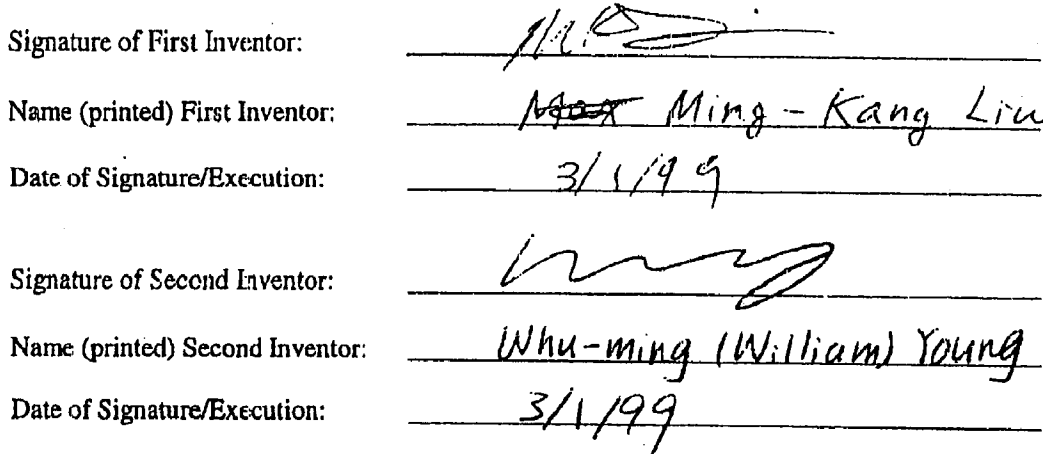 Signature of First Inventor:
Name (printed) First Inventor: Ming-Kang Liu
Date of Signature/Execution: 3/1/99
Signature of Second Inventor:
Name (printed) Second Inventor: Whu-ming (William) Young
Date of Signature/Execution: 3/1/99